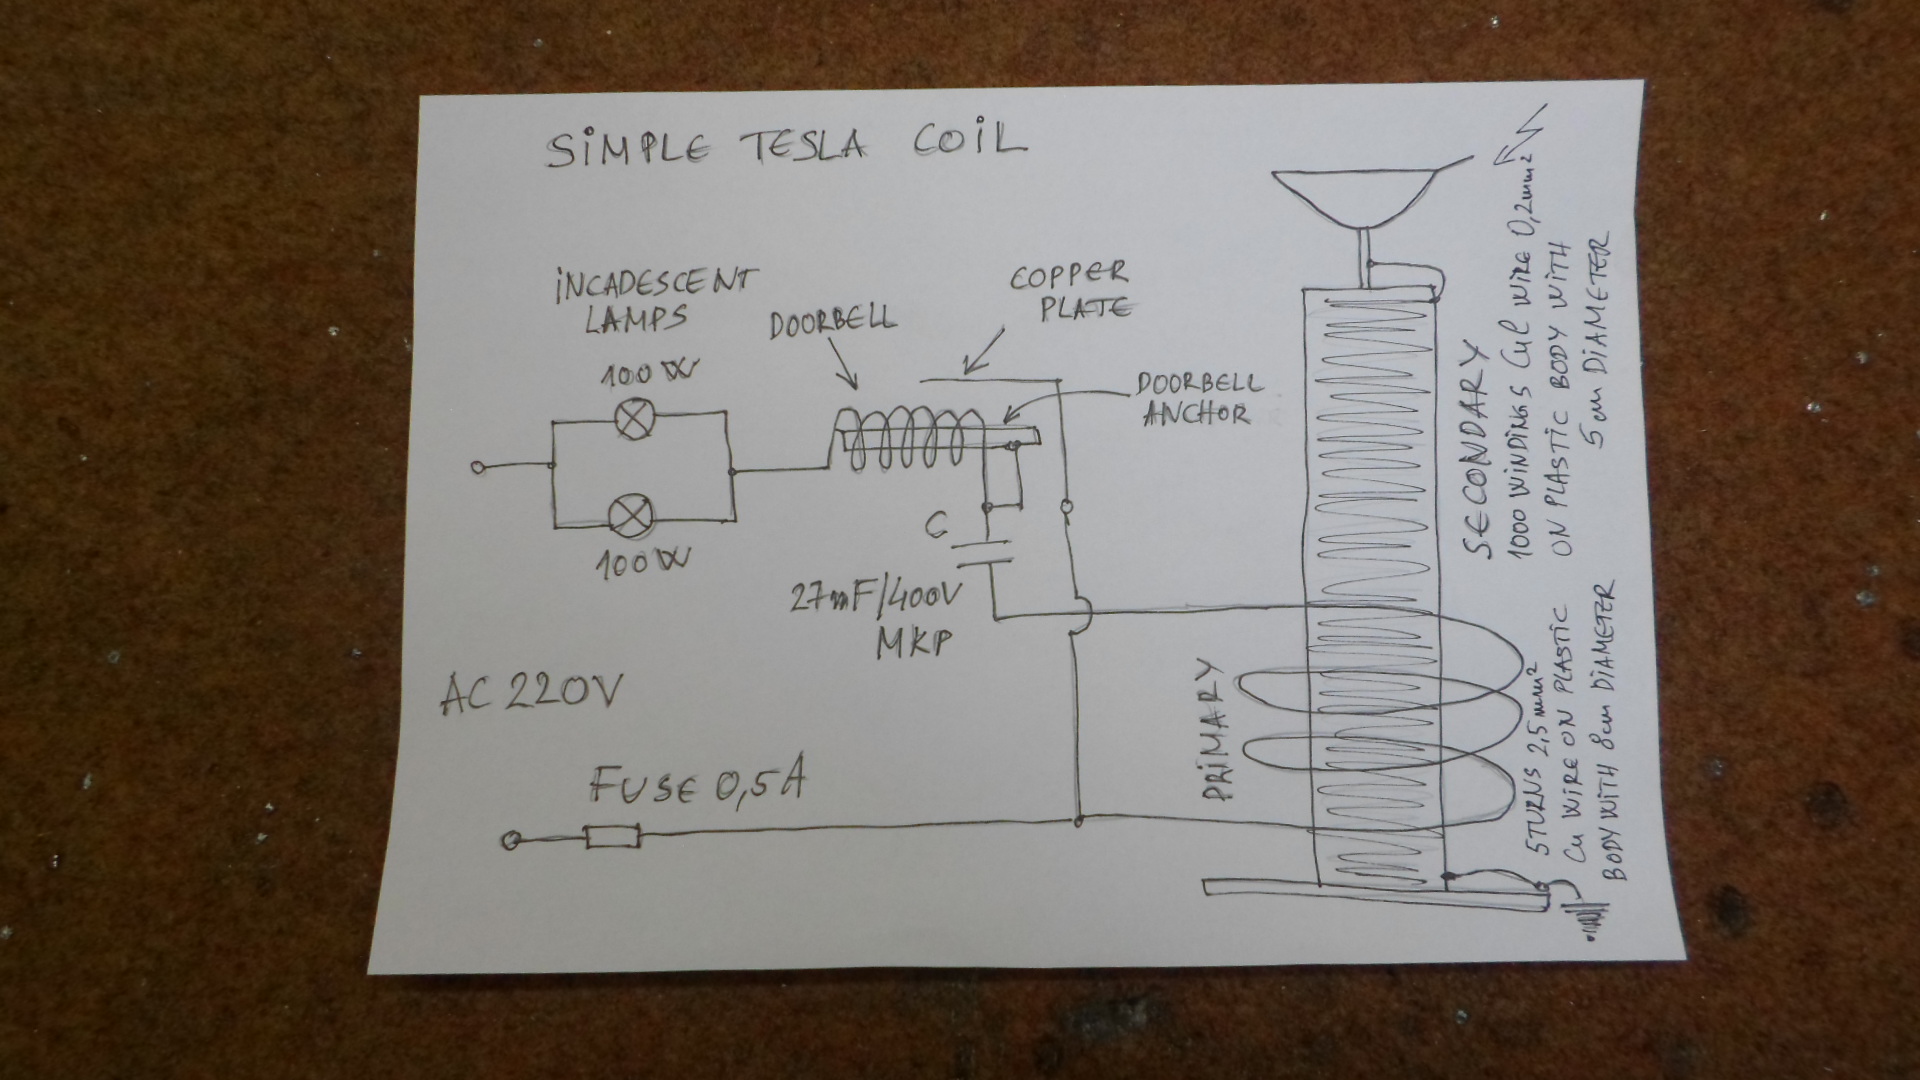 SIMPLE TESLA COIL
INCADESCENT
LAMPS
100W
100W
DOORBELL
COPPER
PLATE
DOORBELL
ANCHOR
C
27nF/400V
MKP
AC 220V
FUSE 0,5A
PRIMARY
5 TURNS 2,5mm²
Cu WIRE ON PLASTIC
BODY WITH 8cm DIAMETER
SECONDARY
1000 WINDINGS Cul WIRE 0,2mm²
ON PLASTIC BODY WITH
5cm DIAMETER